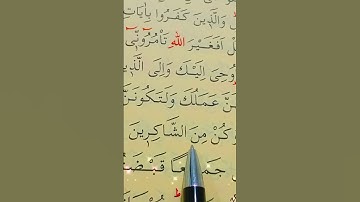 وَالَّذِينَ كَفَرُوا بِاٰيَاتِ
لْ اَفَغَيْرَ اللّٰهِ تَأْمُرُونّٓى
وحِىَ اِلَيْكَ وَاِلَى الَّذ۪ينَ
نَّ عَمَلُكَ وَلَتَكُونَنَّ
وَكُنْ مِنَ الشَّاكِر۪ينَ
جَم۪يعًا قَبْضَ